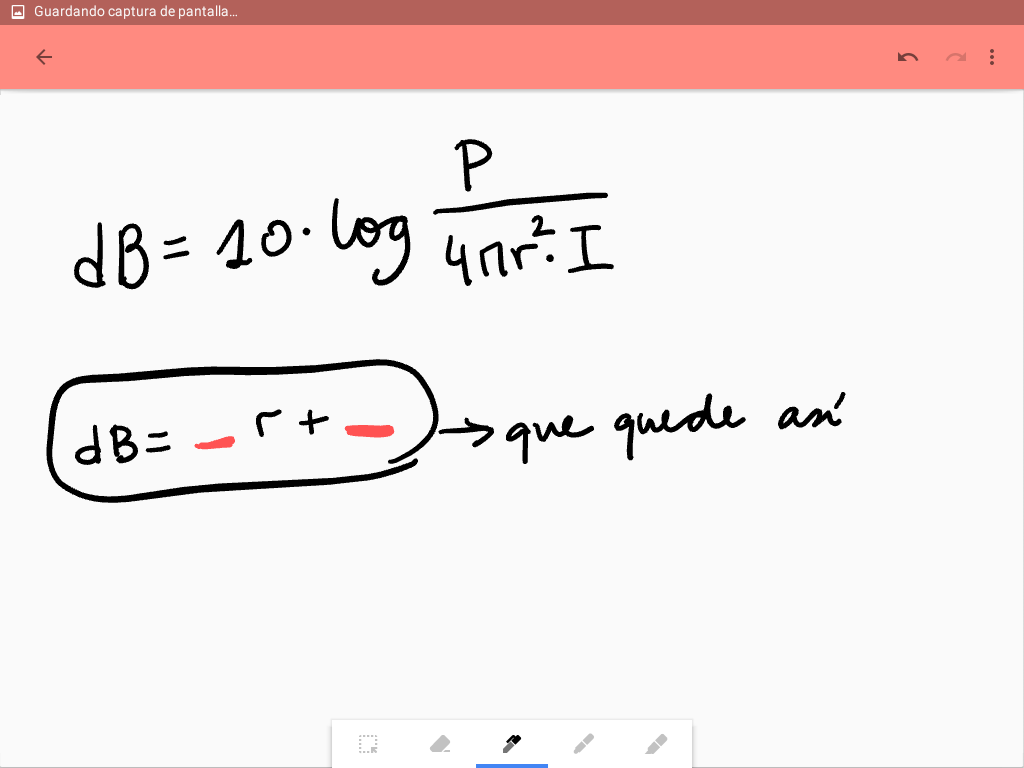 Guardando captura de pantalla...
dB = 10 · log P / 4πr² · I
dB = _ r + _ → que quede así